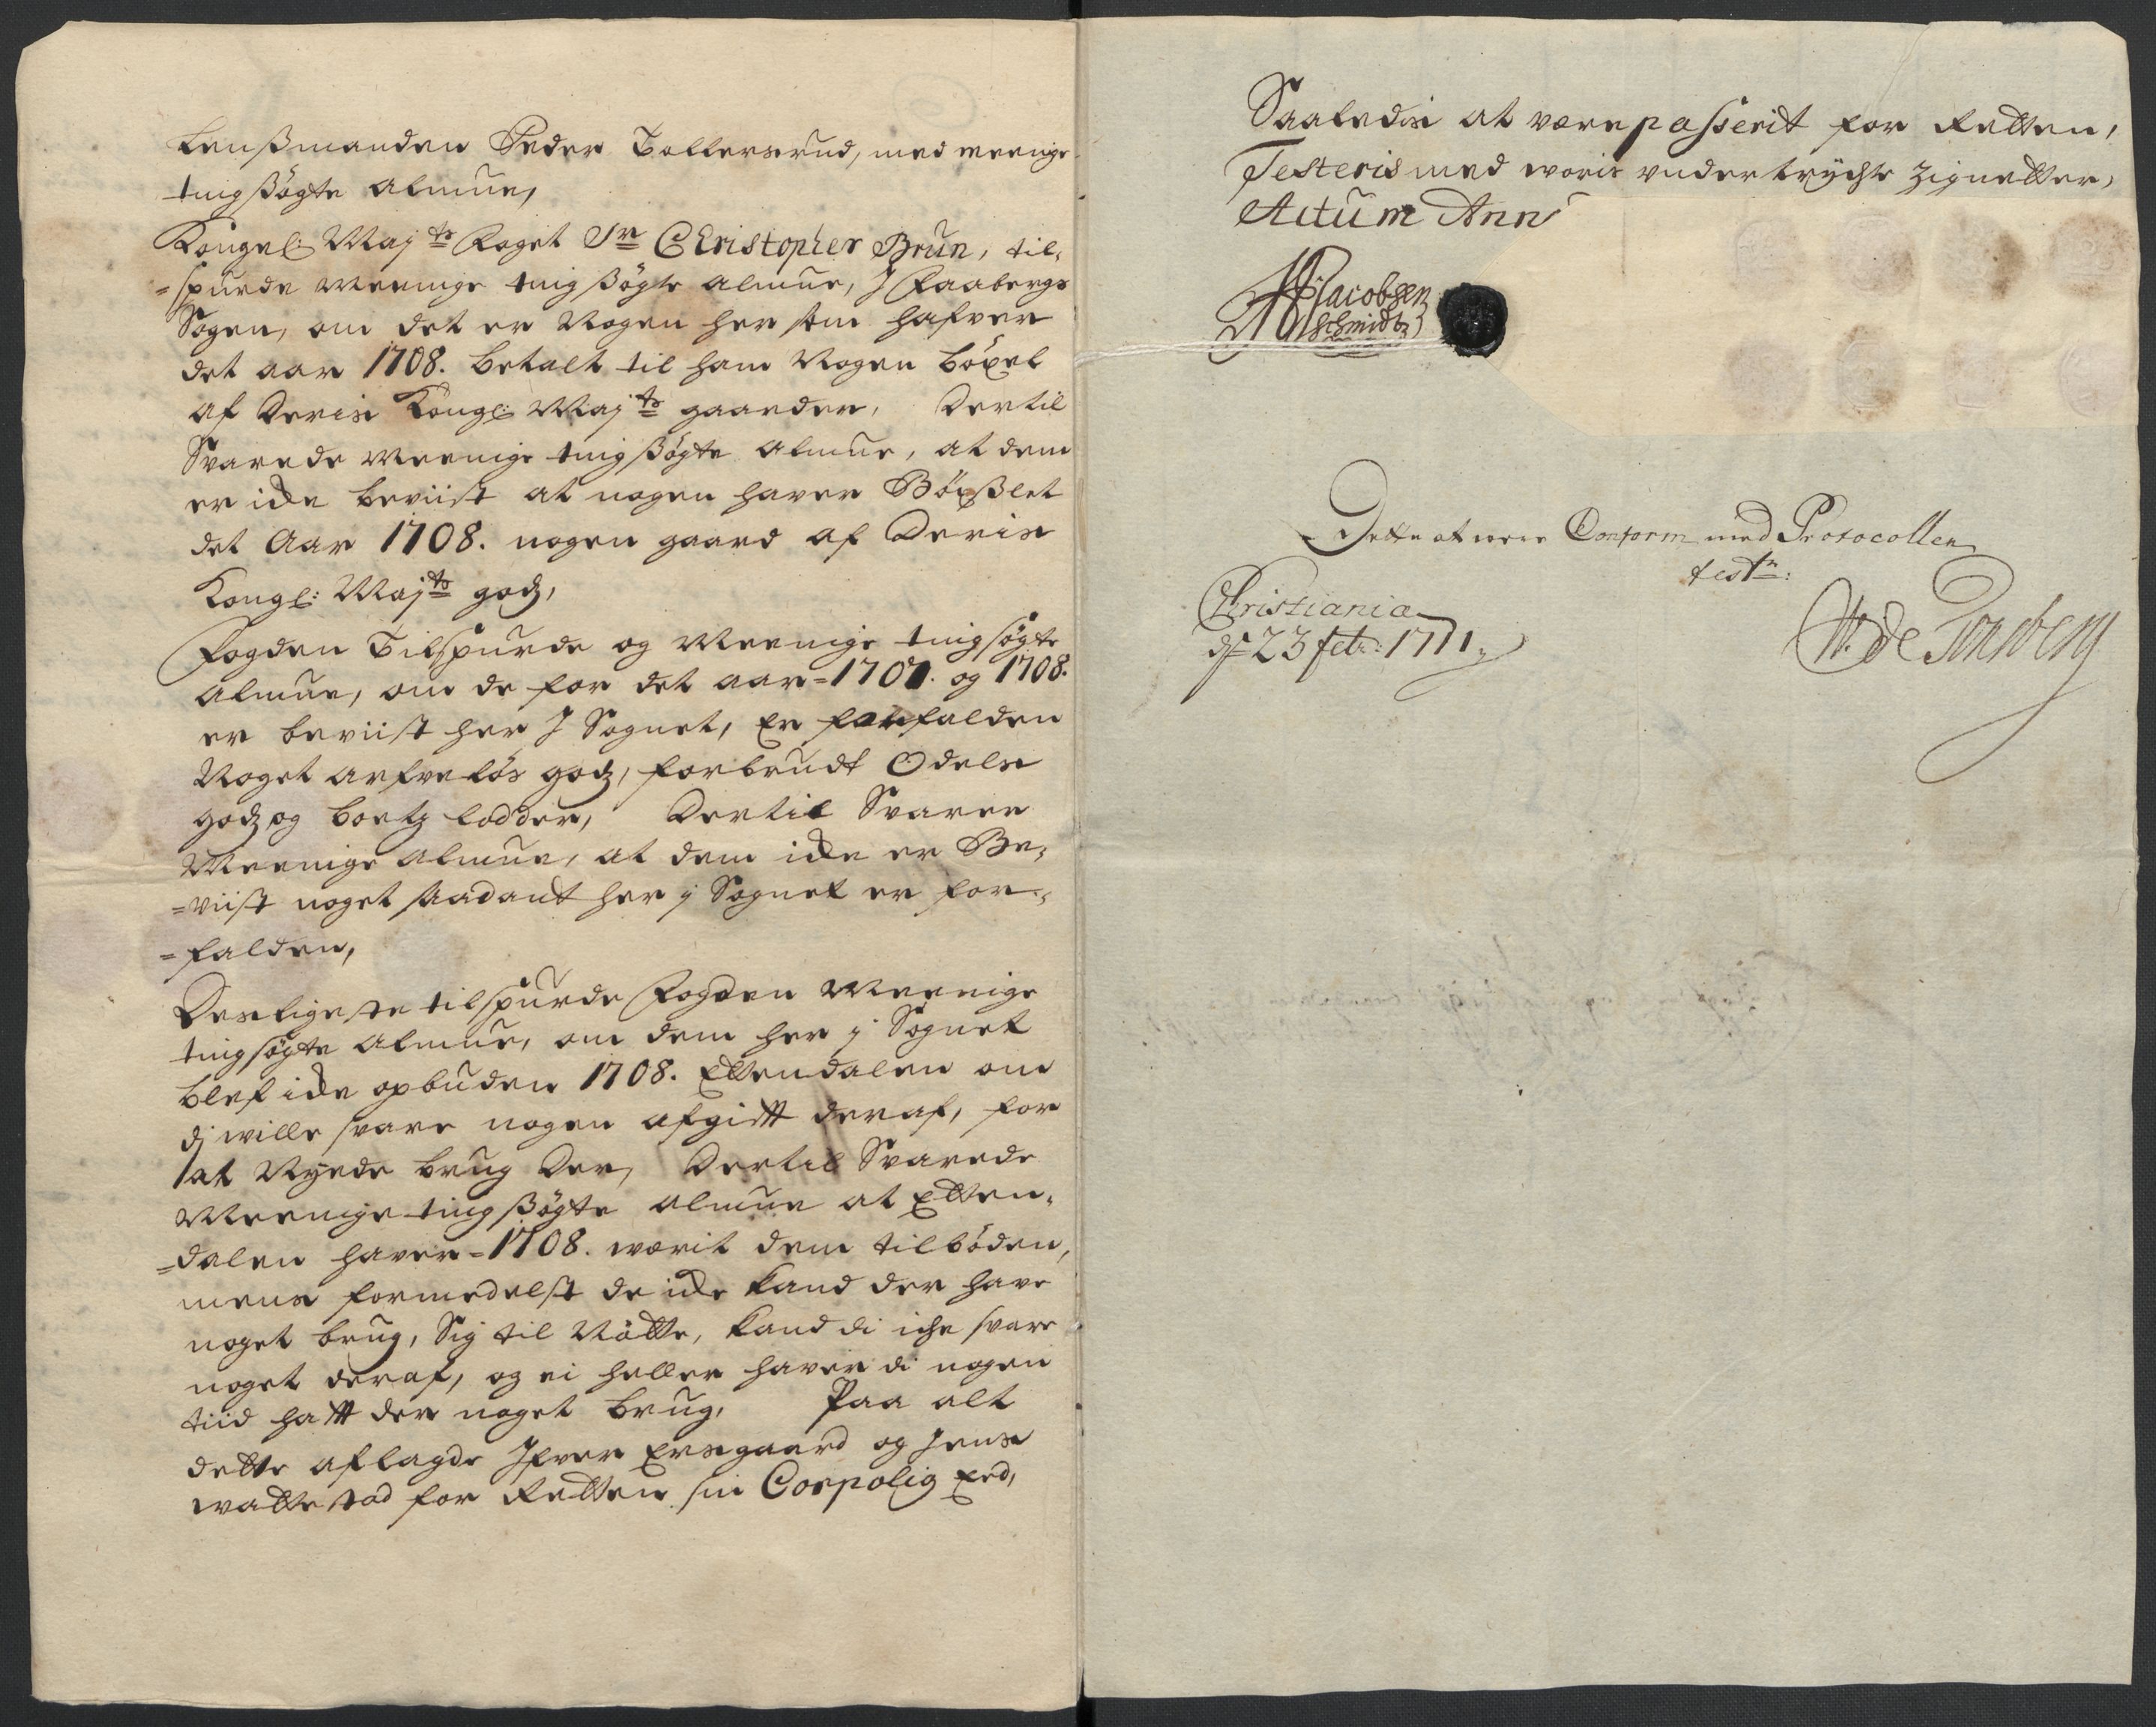 Lensßmanden Peder Tollersrud, med meenige
tingßøgte Almue,
Kongel: Maj.ts Foget Sr. Christopher Brun, til-
=spurde Meenige tingßøgte Almue, I Faabergs
Sogen, om det er Nogen her som hafver
det aar 1708. betalt til ham Nogen böxel
af Deris Kongl: Maj.ts gaarder, Dertil
Svarede Meenige tingßøgte Almue, at dem
er icke beviist at nogen haver Böxßlet
det Aar 1708. nogen gaard af Deris
Kongl: Maj.ts godz,
Fogden Tilspurde og Meenige tingsøgte
Almue, om de for det aar=1707. og 1708.
er beviist her I Sognet, Er forfalden
Noget arfveløs godz, forbrudt Odels
godz og boetz lodder, Dertil Svarer
Meenige Almue, at dem icke er Be-
=viist noget saadant her i Sognet er for-
=falden,
Desligeste tilspurde Fogden Meenige
tingsøgte Almue, om dem her i Sognet
blef icke opbuden 1708. Ettendalen om
di wille svare nogen afgift deraf, for
at Nyede brug Der, Dertil Svarede
Meenige tingßøgte Almue at Etten-
=dalen haver=1708. wærit dem tilböden,
mens formedelst de icke kand der have
noget brug, Sig til Nötte, kand di iche svare
noget deraf, og ei heller haver di nogen
tiid hatt der noget brug, Paa alt
dette aflagde Ifver Ersgaard og Jens
wattestad for Retten sin Corpolig Eed,
Saaledis at være passerit for Retten,
Testeris med woris under trychte Zignetter,
Actum Ann
Jacobsen
Schmidt
Dette at were Conform med Protocollen
test:
Christiania
d. 23 feb: 1711
W. de Tonsberg